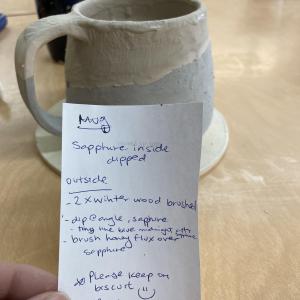 Mug
Sapphire inside
dipped
outside
- 2 x winter wood brushed
- dip @ angle, sapphire
- tiny line blue midnight
- brush honey flux over
sapphire
Please keep on
biscuit